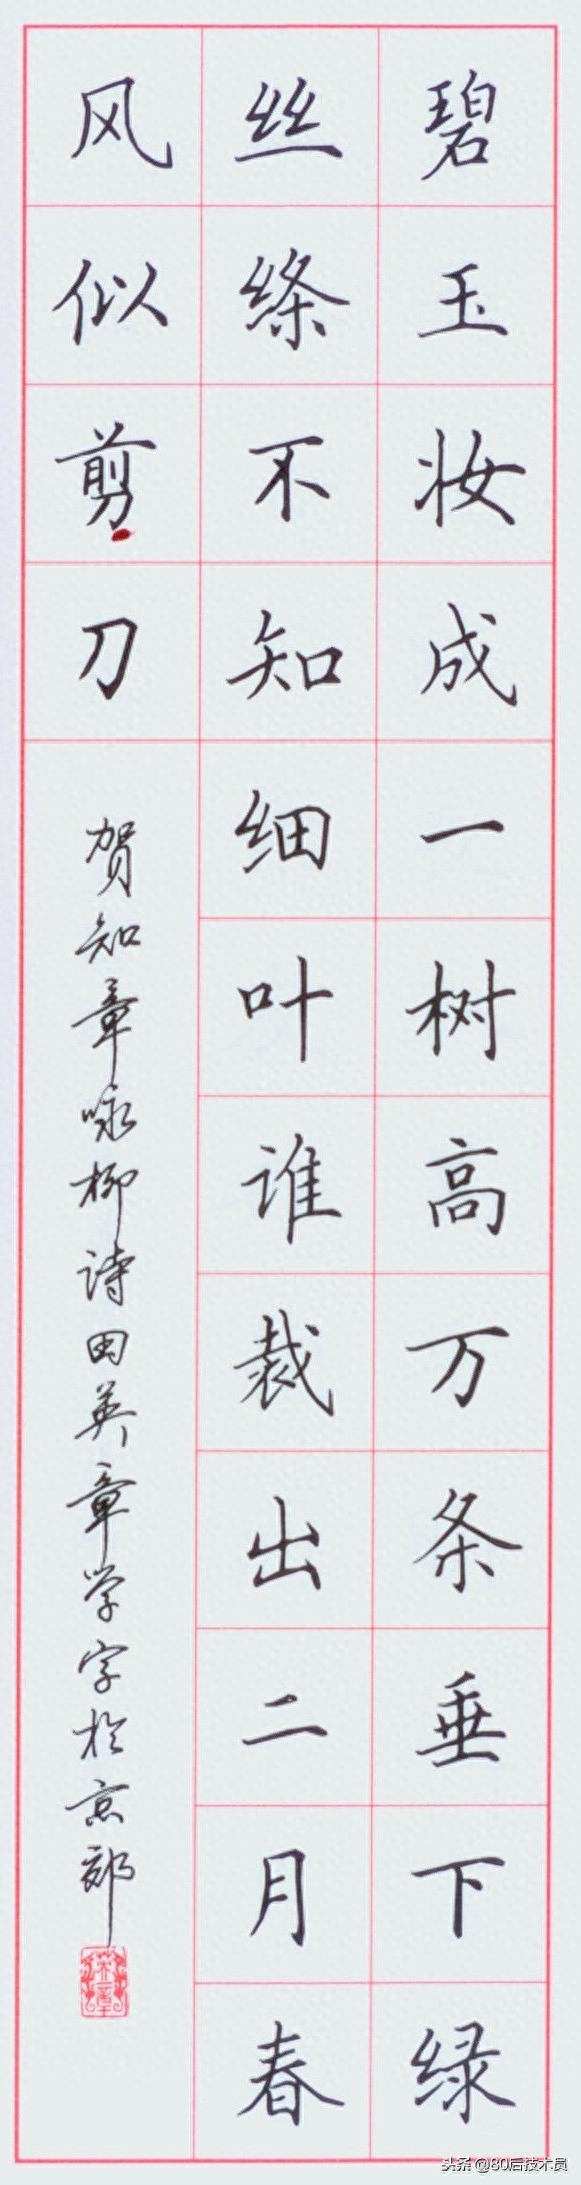 碧玉妆成一树高万条垂下绿
丝绦不知细叶谁裁出二月春
风似剪刀
贺知章咏柳诗田英章学字於京郊
英章
头条 @80后技术员